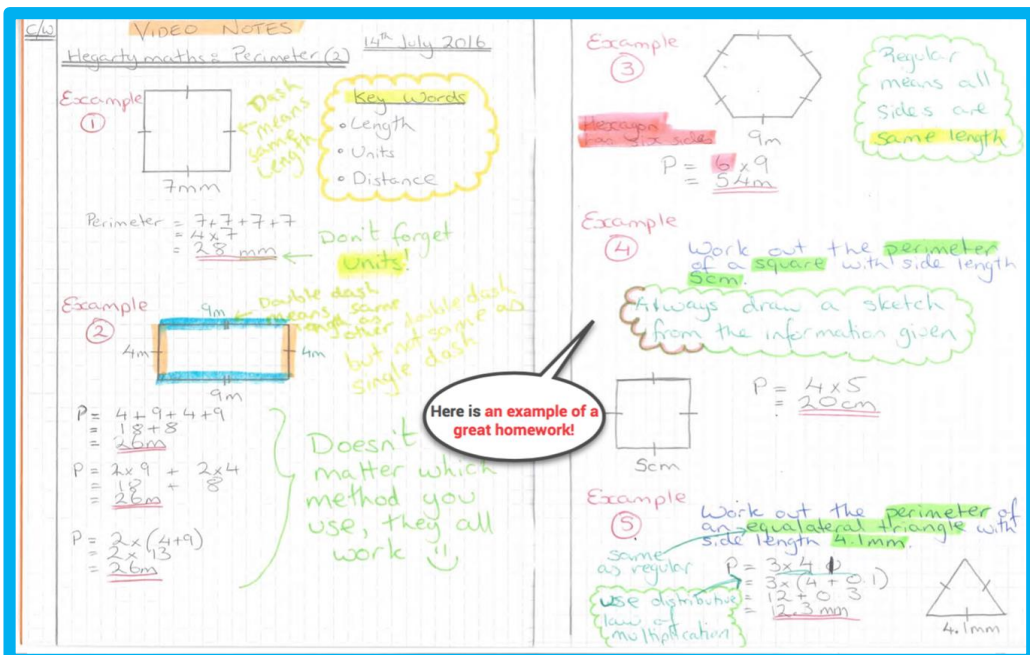 C/W
VIDEO NOTES
14th July 2016
Hegartymaths: Perimeter (2)
Example
①
Dash
means
same
length
7mm
Key Words
• Length
• Units
• Distance
Perimeter = 7+7+7+7
= 4×7
= 28 mm
Don't forget
Units!
Example
②
9m
4m
4m
9m
Double dash
means same
length as
other double dash
but not same as
single dash
P = 4+9+4+9
= 18+8
= 26m
P = 2×9 + 2×4
= 18 + 8
= 26m
P = 2×(4+9)
= 2×13
= 26m
Doesn't
matter which
method you
use, they all
work
Here is an example of a
great homework!
Example
③
9m
Regular
means all
sides are
same length
Hexagon
has six sides
P = 6×9
= 54m
Example
④
Work out the perimeter
of a square with side length
5cm.
Always draw a sketch
from the information given
5cm
P = 4×5
= 20cm
Example
⑤
Work out the perimeter of
an equalateral triangle with
side length 4.1mm.
same
as regular
use distributive
law of
multiplication
P = 3×4
= 3×(4 + 0.1)
= 12 + 0 3
= 12.3 mm
4.1mm